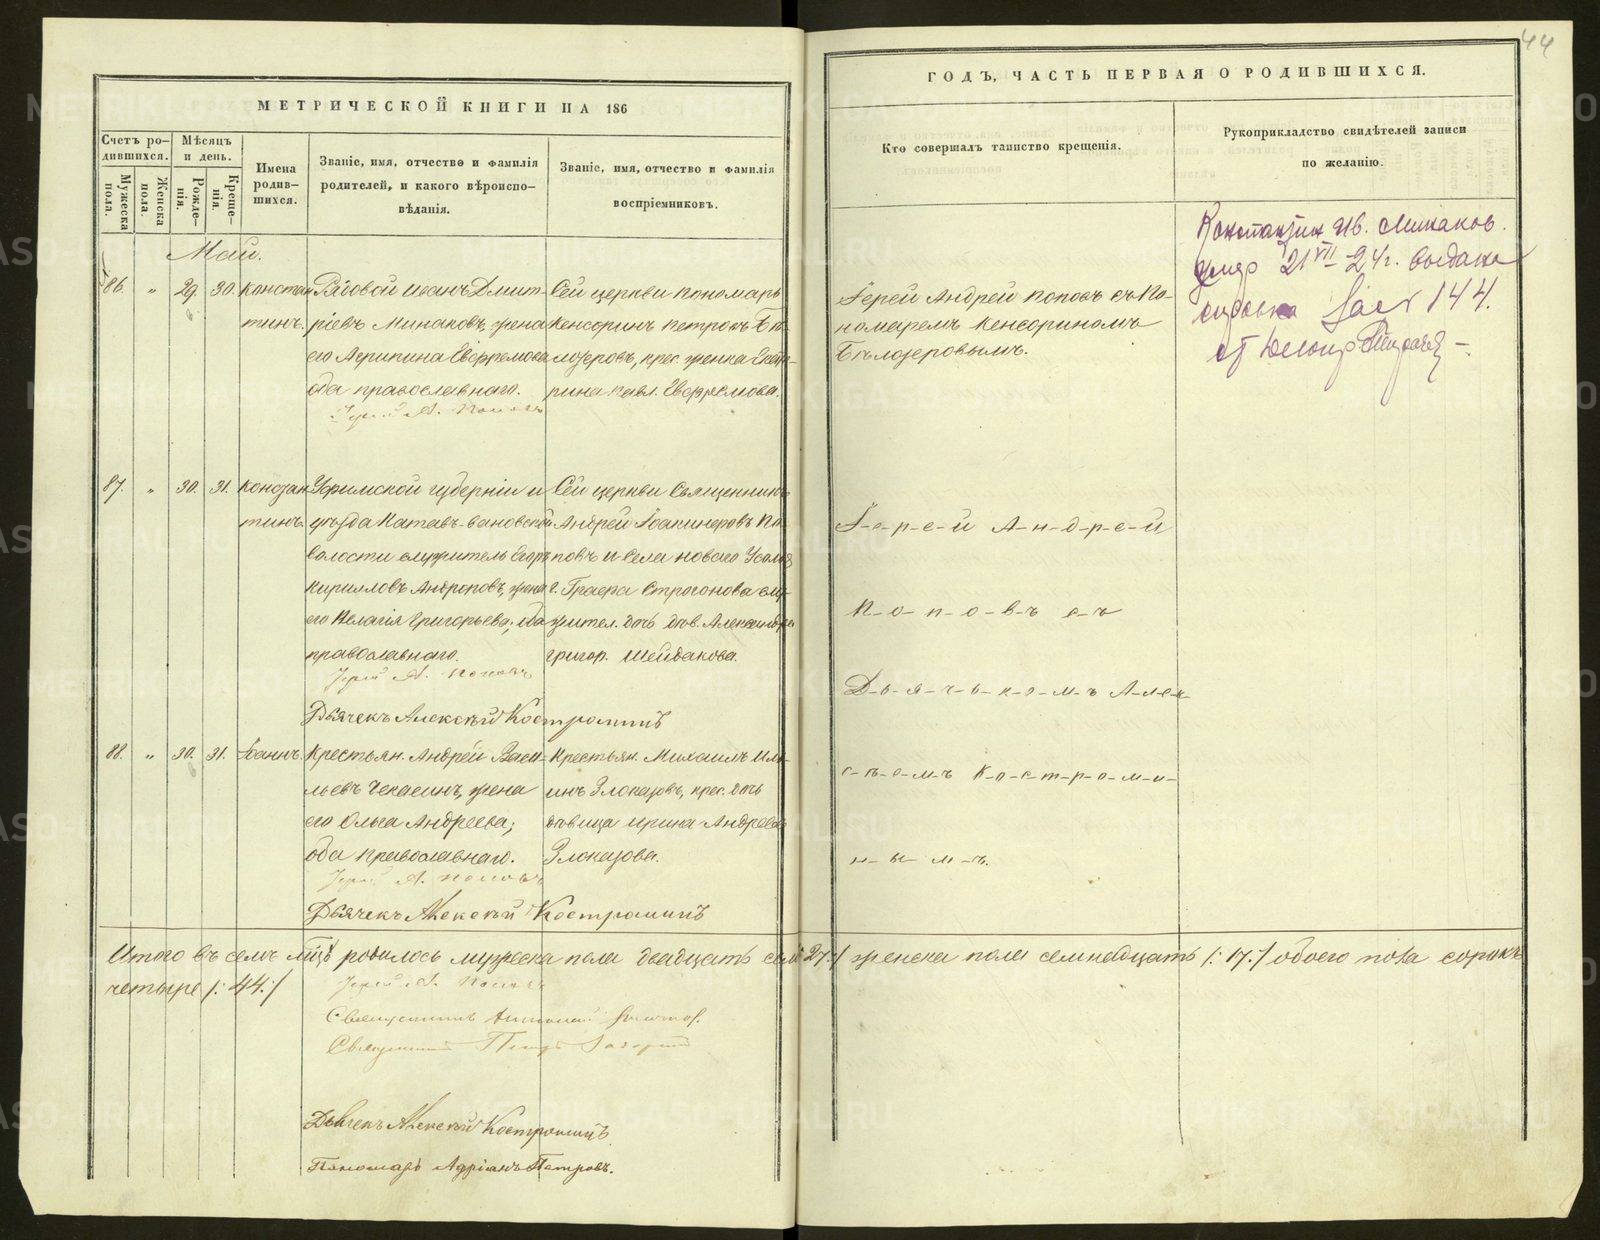 44
МЕТРИЧЕСКОЙ КНИГИ НА 186
ГОДЪ, ЧАСТЬ ПЕРВАЯ О РОДИВШИХСЯ.
Счетъ ро-
дившихся.
Мужеска
пола.
Женска
пола.
Мѣсяцъ
и день.
Рожде-
нія.
Креще-
нія.
Имена
родив-
шихся.
Званіе, имя, отчество и фамилія
родителей, и какого вѣроиспо-
вѣданія.
Званіе, имя, отчество и фамилія
воспріемниковъ.
Кто совершалъ таинство крещенія.
Рукоприкладство свидѣтелей записи
по желанію.
Май.
86. " 29. 30. Констан-
тинъ.
Рядовой Иванъ Дмит-
ріевъ Минаковъ, жена
его Агрипина Евфремова
оба православнаго.
Іерей А. Поповъ
Сей церкви пономарь
Кенсоринъ Петровъ Бѣ-
лозеровъ, крес. женка Екате-
рина Павл. Евфремова.
Іерей Андрей Поповъ съ По-
номаремъ Кенсориномъ
Бѣлозеровымъ.
Константин Ив. Минаков.
21 VII-24 г. выдана
144.
87. " 30. 31. Констан-
тинъ.
Уфимской губерніи и
уѣзда Катавъ-Ивановской
волости служитель Егоръ
Кирилловъ Андроповъ, жена
его Пелагія Григорьева, оба
православнаго.
Іерей А. Поповъ
Дьячекъ Алексѣй Костроминъ
Сей церкви Священникъ
Андрей Іоакинеровъ По-
повъ и села Новаго Усолья
г. Графа Строгонова слу-
жител. дочь дѣв. Александра
Григор. Шейдакова.
І-е-р-е-й А-н-д-р-е-й
П-о-п-о-в-ъ с-ъ
Д-ь-я-ч-ь-к-о-м-ъ А-лек-
с-ѣ-е-м-ъ К-о-с-т-р-о-м-и-
н-ы-м-ъ.
88. " 30. 31. Іоаннъ.
Крестьян. Андрей Васи-
льевъ Чекасинъ, жена
его Ольга Андреева;
оба православнаго.
Іерей А. Поповъ
Дьячекъ Алексѣй Костроминъ
Крестьян. Михаилъ Иль-
инъ Злоказовъ, крес. дочь
дѣвица Ирина Андреева
Злоказова.
Итого въ семъ м-цѣ родилось мужеска пола двадцать семь 27./ женска пола семнадцать /: 17./ обоего пола сорокъ
четыре /: 44:/
Іерей А. Поповъ
Священникъ
Священникъ Петръ
Дьячекъ Алексѣй Костроминъ
Пономарь Адріанъ Петровъ.